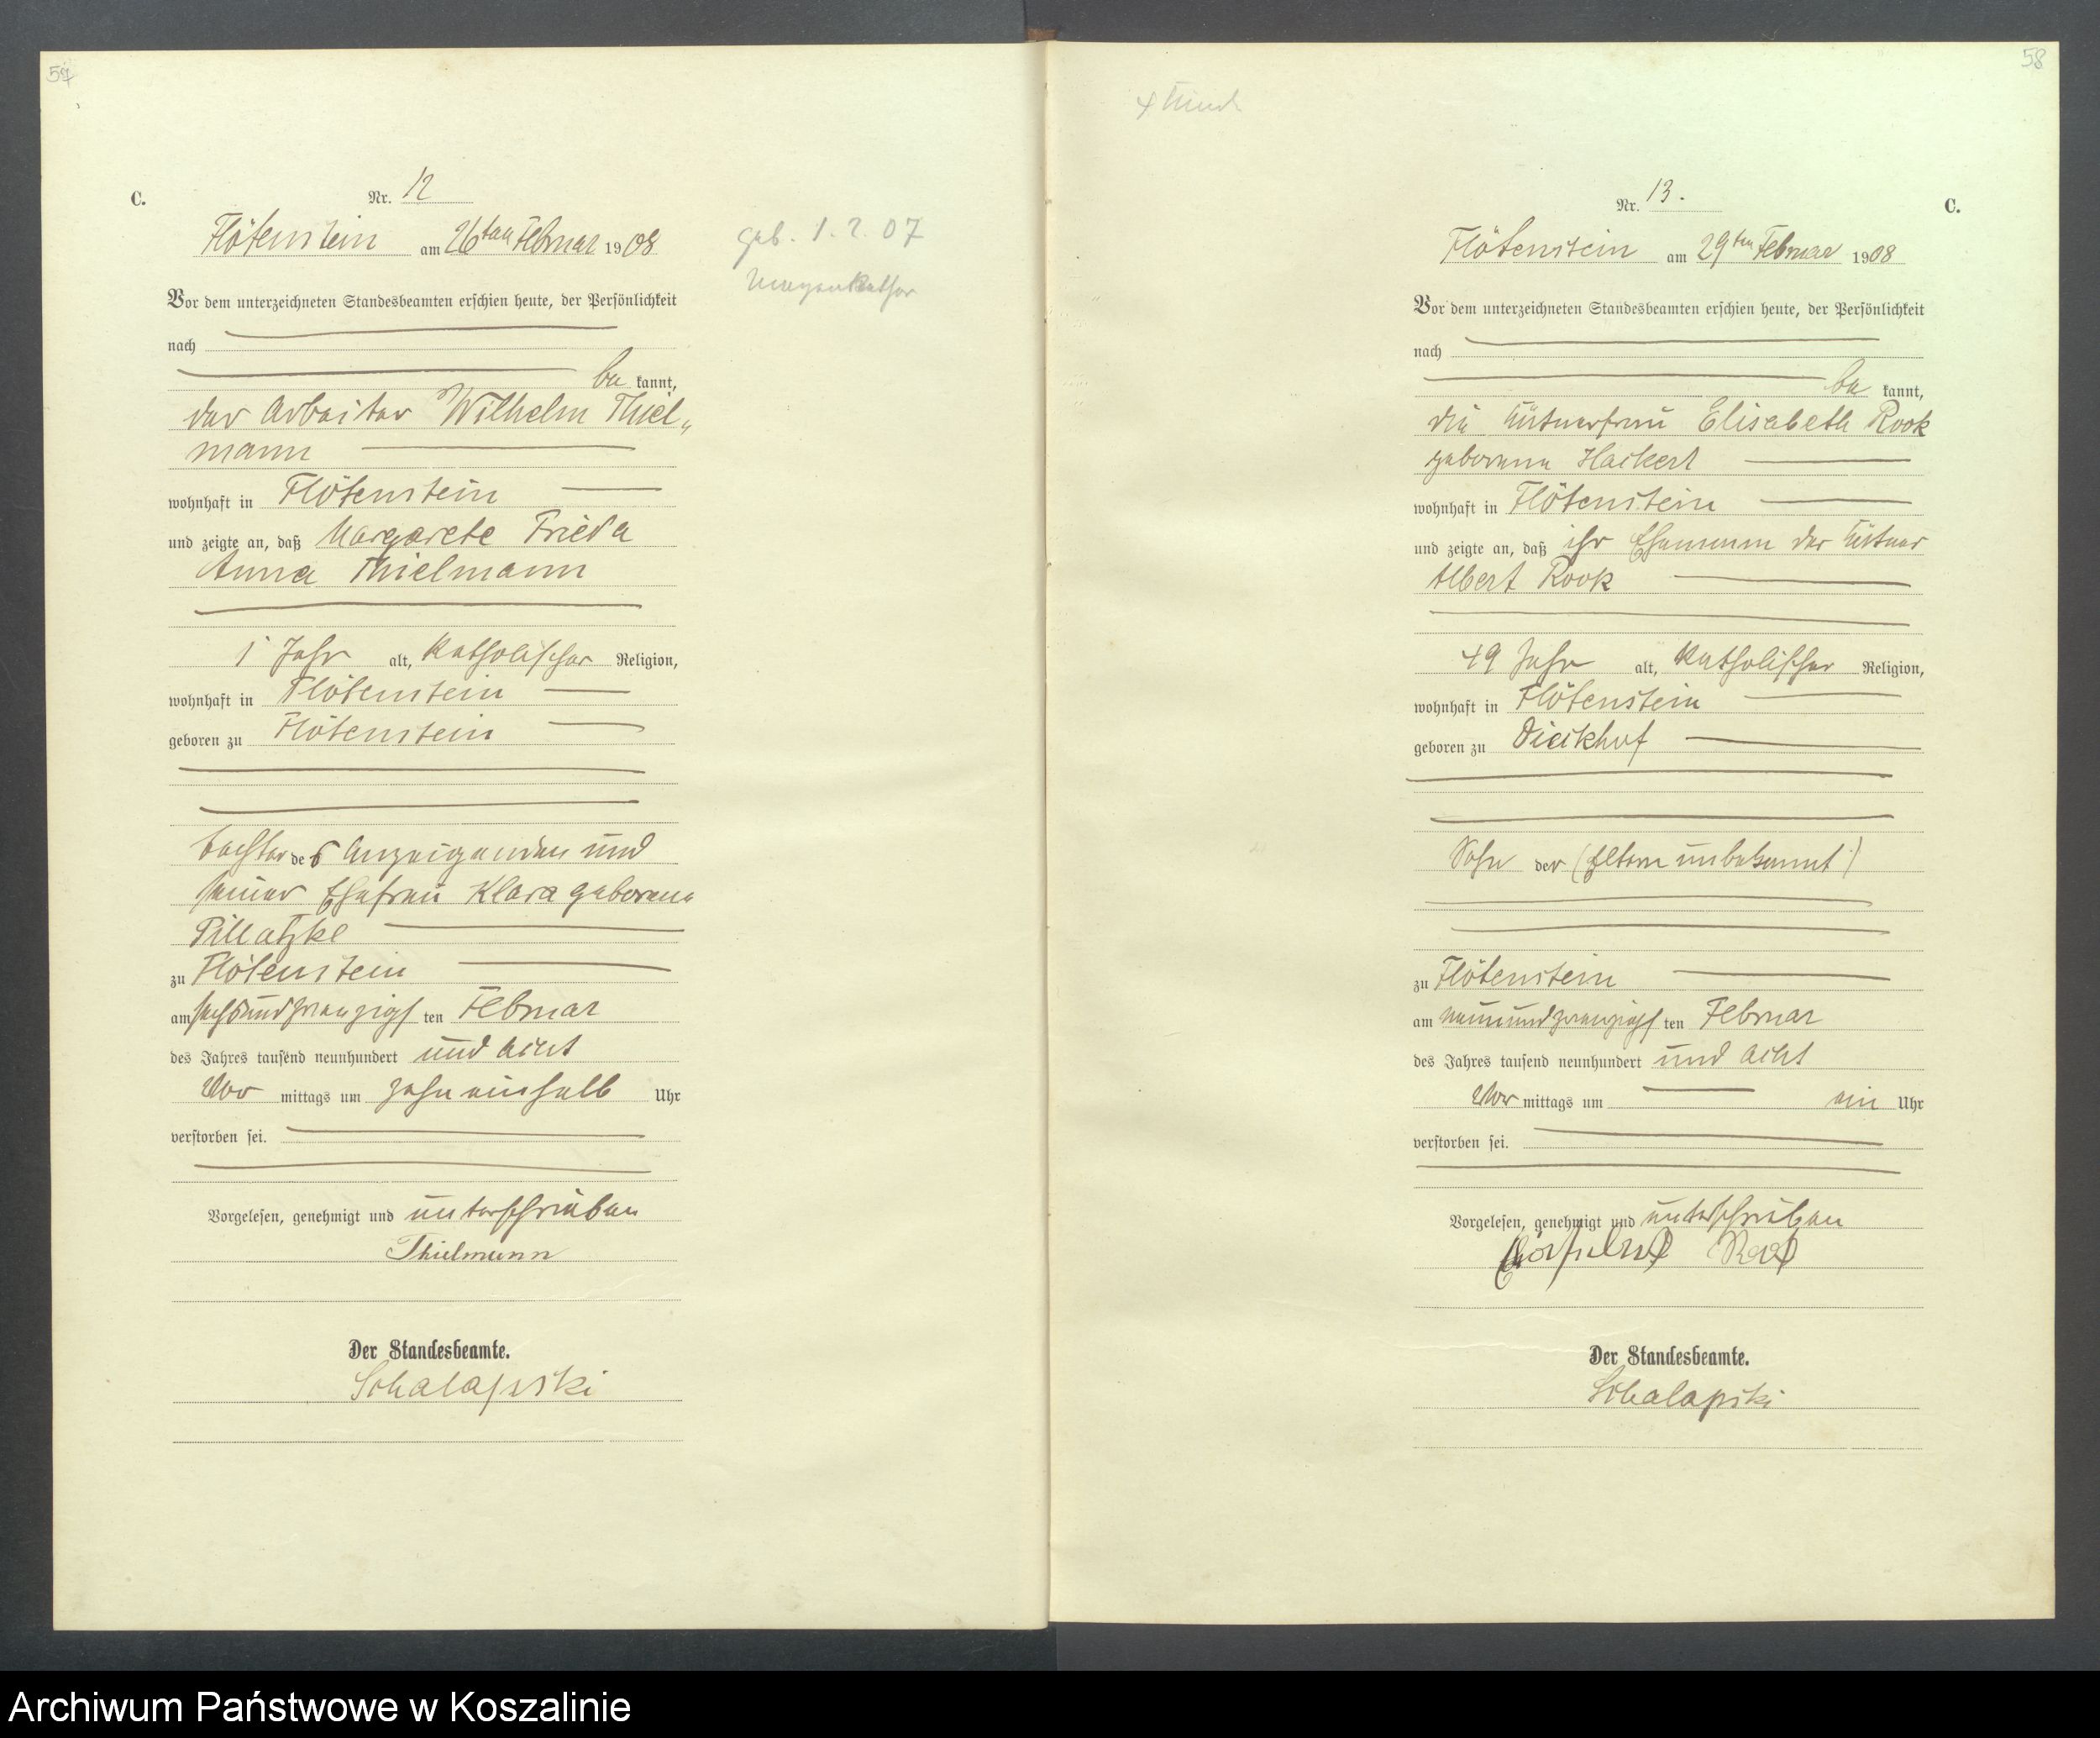 57
C.
Nr. 12
Flötenstein am 26ten Februar 1908
geb. 1.2.07
Magenkathar
Vor dem unterzeichneten Standesbeamten erschien heute, der Persönlichkeit
nach
be kannt,
der Arbeiter Wilhelm Thiel„
mann
wohnhaft in Flötenstein
und zeigte an, daß Margarete Frieda
Anna Thielmann
1 Jahr alt, katholischer Religion,
wohnhaft in Flötenstein
geboren zu Flötenstein
tochter des Anzeigenden und
seiner Ehefrau Klara geborene
Pillatzke
zu Flötenstein
am sechsundzwanzigsten Februar
des Jahres tausend neunhundert und acht
Vor mittags um zehn einhalb Uhr
verstorben sei.
Vorgelesen, genehmigt und unterschrieben
Thielmann
Der Standesbeamte.
Schalapski
58
Nr. 13.
C.
Flötenstein am 29ten Februar 1908
Vor dem unterzeichneten Standesbeamten erschien heute, der Persönlichkeit
nach
be kannt,
die Büdnerfrau Elisabeth Rook
geborene Hackert
wohnhaft in Flötenstein
und zeigte an, daß ihr Ehemann der Büdner
Albert Rook
49 Jahr alt, katholischer Religion,
wohnhaft in Flötenstein
geboren zu Dickhof
Sohn der (Eltern unbekannt)
zu Flötenstein
am neunundzwanzigsten Februar
des Jahres tausend neunhundert und acht
Vor mittags um ein Uhr
verstorben sei.
Vorgelesen, genehmigt und unterschrieben
Der Standesbeamte.
Schalapski
Archiwum Państwowe w Koszalinie